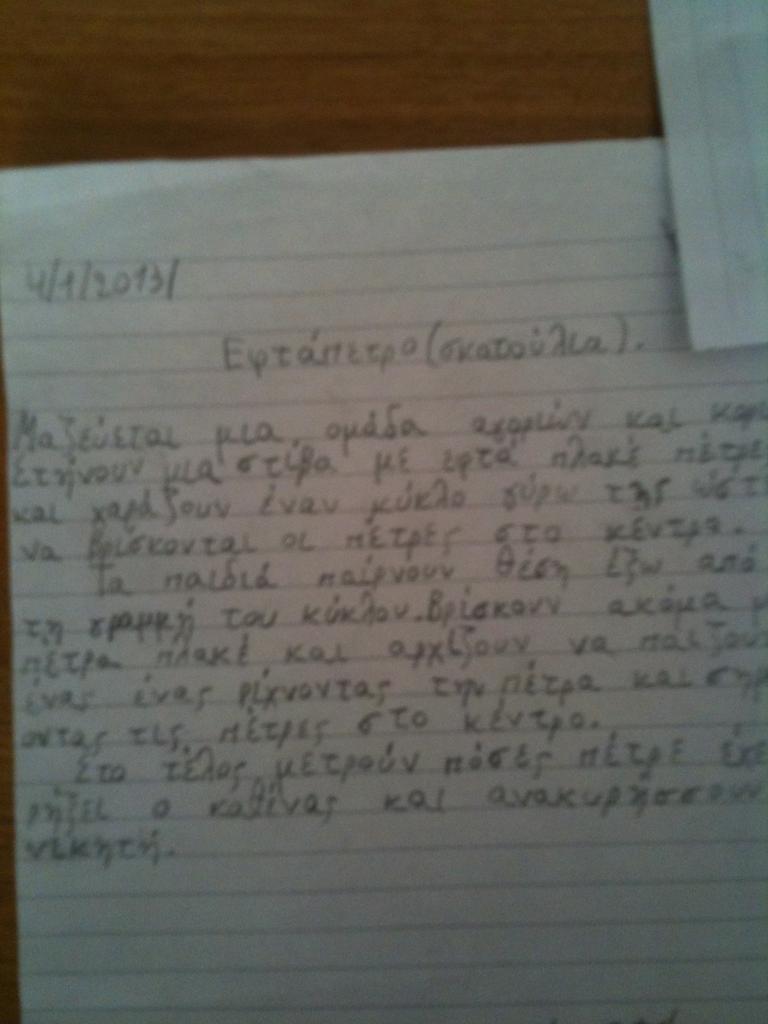 4/1/2013/
Εφτάπετρο (σκατούλια).
Μαζεύεται μια ομάδα αγοριών και
Στήνουν μια στίβα με εφτά πλακέ πέτρε
και χαράζουν έναν κύκλο γύρω της ώστε
να βρίσκονται οι πέτρες στο κέντρο.
Τα παιδιά παίρνουν θέση έξω από
τη γραμμή του κύκλου. Βρίσκουν ακόμα
πέτρα πλακέ και αρχίζουν να παίζουν
ένας ένας ρίχνοντας την πέτρα και
οντας τις πέτρες στο κέντρο.
Στο τέλος μετρούν πόσες πέτρε έχε
ρήξει ο καθένας και ανακυρήσσουν
νικητή.